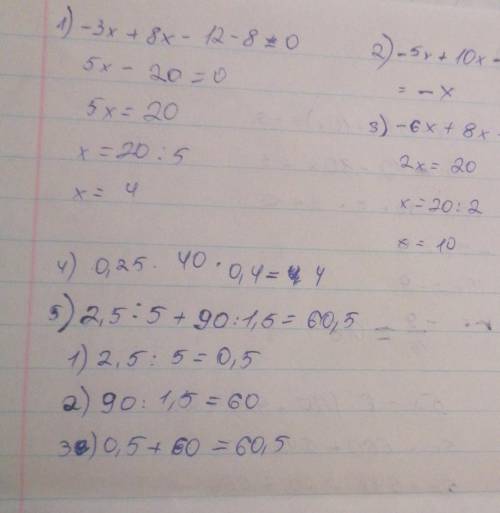 1) -3x + 8x - 12 - 8 = 0
5x - 20 = 0
5x = 20
x = 20 : 5
x = 4
2) -5x + 10x -
= -x
3) -6x + 8x -
2x = 20
x = 20 : 2
x = 10
4) 0,25 · 40 · 0,4 = 4
5) 2,5 : 5 + 90 : 1,5 = 60,5
1) 2,5 : 5 = 0,5
2) 90 : 1,5 = 60
3) 0,5 + 60 = 60,5